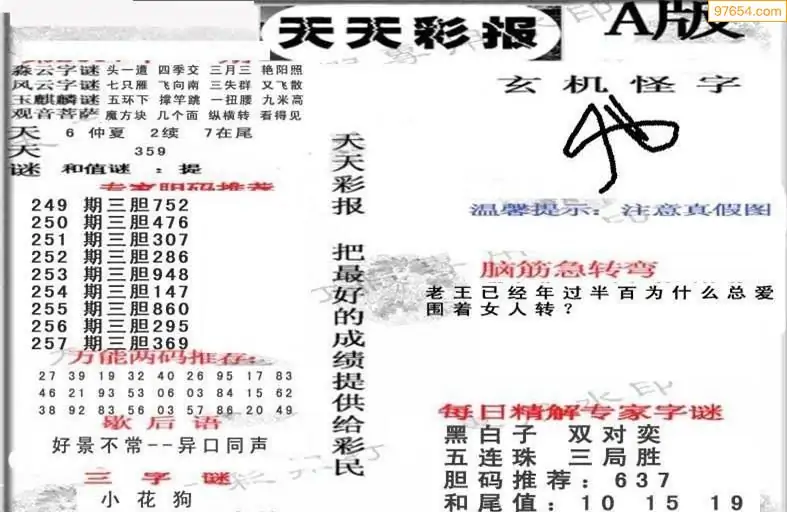 97654.com
天天彩报
A版
淼云字谜 头一道 四季交 三月三 艳阳照
风云字谜 七只雁 飞向南 三失群 又飞散
玉麒麟谜 五环下 撑竿跳 一扭腰 九米高
观音菩萨 魔方块 几个面 纵横转 看得见
天 6 仲夏 2续 7在尾
天 359
谜 和值谜：提
专家胆码推荐
249 期三胆752
250 期三胆476
251 期三胆307
252 期三胆286
253 期三胆948
254 期三胆147
255 期三胆860
256 期三胆295
257 期三胆369
万能两码推荐:
27 39 19 32 40 26 95 17 83
46 21 93 53 06 03 84 15 62
38 92 83 56 03 57 86 20 49
歇后语
好景不常--异口同声
三字谜
小花狗
天天彩报 把最好的成绩提供给彩民
玄机怪字
温馨提示：注意真假图
脑筋急转弯
老王已经年过半百为什么总爱
围着女人转？
每日精解专家字谜
黑白子 双对弈
五连珠 三局胜
胆码推荐：637
和尾值：10 15 19